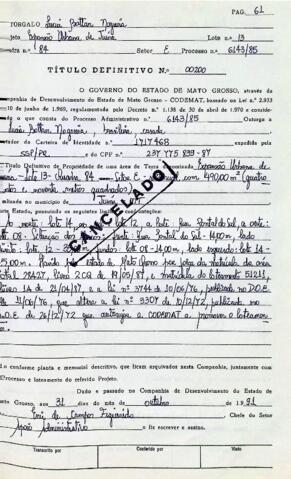 PAG. 61
TORGALO Lucia Bottan Nogueira
jeto Expansão Urbana de Juina Lote n.º 13
dra n.º 84 Setor E Processo n.º 6143/85
TÍTULO DEFINITIVO N.º 00200
O GOVERNO DO ESTADO DE MATO GROSSO, através da
mpanhia de Desenvolvimento do Estado de Mato Grosso - CODEMAT, baseado na Lei n.º 2.933
10 de junho de 1969, regulamentada pelo Decreto n.º 1.138 de 30 de abril de 1970 e conside
o que consta do Processo Administrativo n.º 6143/85 Outorga a
Lucia Bottan Nogueira, brasileira, casada
rtador da Carteira de Identidade n.º 1717468
SSP/PR e do CPF n.º 237 775 839-87
Título Definitivo de Propriedade de uma área de Terra denominada Expansão Urbana de
Juina - Lote 13 - quadra 84 - Setor E com 490,00 m² (quatro
e noventa metros quadrados)
município de Juina
Estado, possuindo as seguintes limites e confrontações:
CANCELADO
norte: lote 14 lote 12, a leste: Rua Pontal do Sul, a oeste:
lote 08 - frente: Rua Pontal do Sul - 14,00 m, lado
lote 12 - fundos: lote 08 - 14,00 m, lado esquerdo: lote 14 -
35,00 m. estado de Mato Grosso por força da matrícula da área
total 28427, livro 2CQ de 18/05/87, e matrícula do loteamento 51211,
livro 1A de 21/04/87, e a lei nº 3744 de 10/06/76, publicada no D.O.E.
11/06/76, que altera a lei nº 3307 de 10/12/72, publicada no
D.O.E. de 26/12/72 que autoriza a CODEMAT a promover o loteamen
conforme planta e memorial descritivo, que ficam arquivados nesta Companhia, juntamente com
Processo e lateamento do referido Projeto.
Dado e passado na Companhia de Desenvolvimento do Estado de
Mato Grosso, aos 31 dias do mês de outubro de 1991
Eni de Campos Figueiredo Chefe do Setor
Apoio Administrativo fiz escrever e assino.
Transcrito por Conferido por Visto